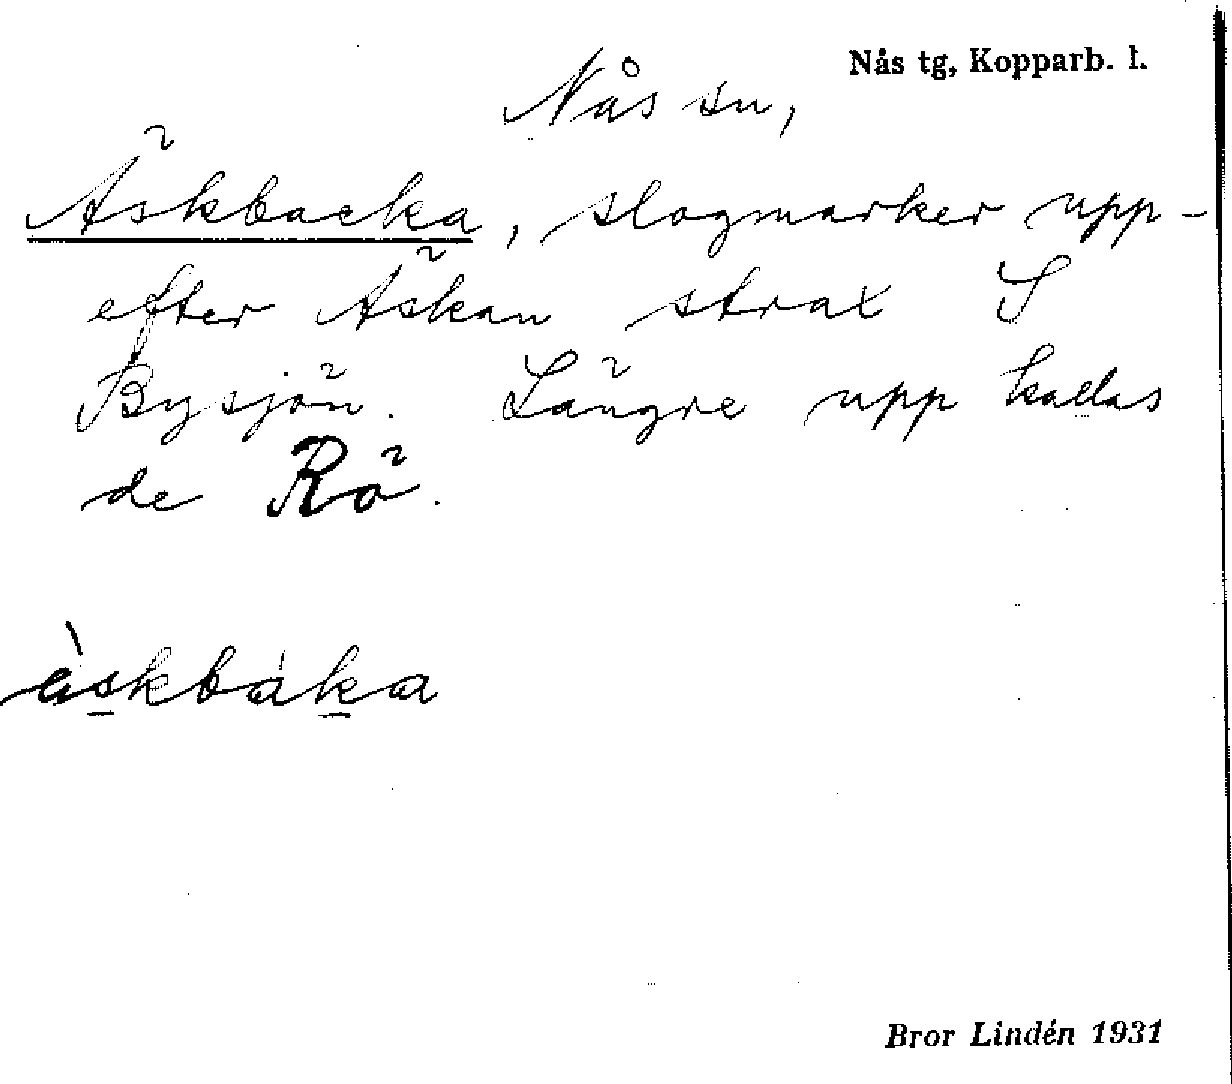 Nås tg, Kopparb. l.
Nås sn,
Äskbacka, slogmarker upp-
efter Äskan strax S
Bysjön. Längre upp kallas
de Rö.
äskbaka
Bror Lindén 1931